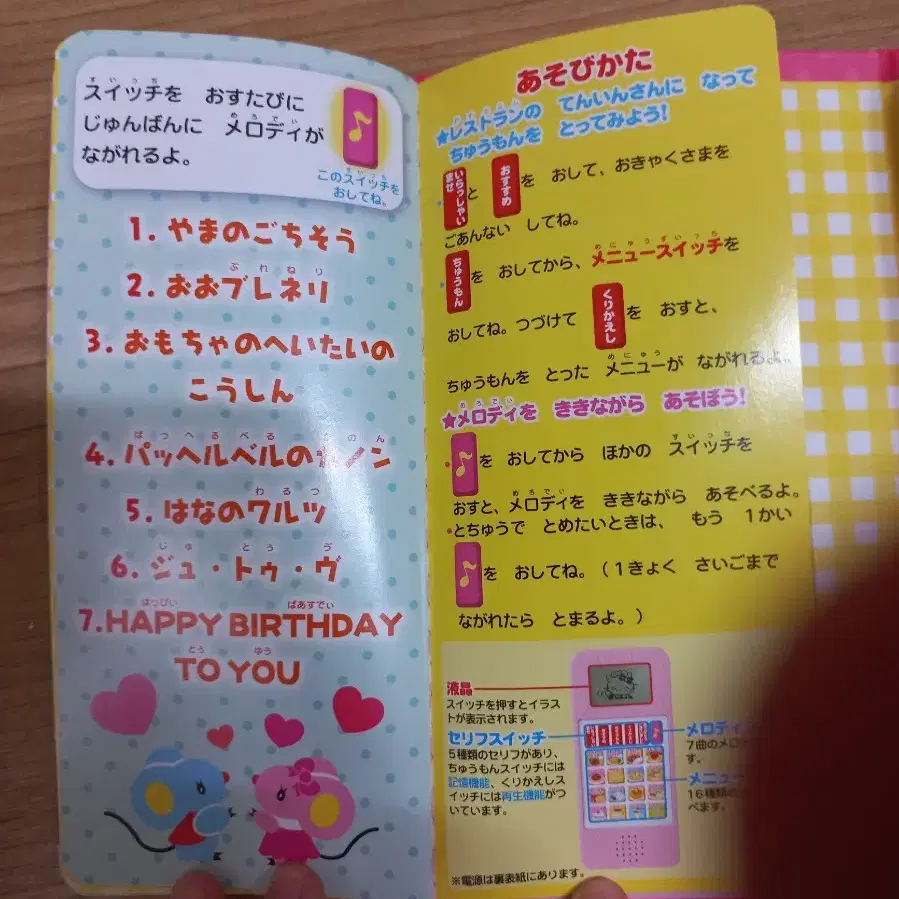 スイッチを おすたびに
じゅんばんに メロディが
ながれるよ。
このスイッチを
おしてね。
1. やまのごちそう
2. おおブレネリ
3. おもちゃのへいたいの
こうしん
4. パッヘルベルのカノン
5. はなのワルツ
6. ジュ・トゥ・ヴ
7. HAPPY BIRTHDAY
TO YOU
あそびかた
★レストランの てんいんさんに なって
ちゅうもんを とってみよう!
・いらっしゃいませ と おすすめ を おして、おきゃくさまを
ごあんない してね。
・ちゅうもん を おしてから、メニュースイッチを
おしてね。つづけて くりかえし を おすと、
ちゅうもんを とった メニューが ながれるよ。
★メロディを ききながら あそぼう!
・♪を おしてから ほかの スイッチを
おすと、メロディを ききながら あそべるよ。
・とちゅうで とめたいときは、 もう 1かい
♪を おしてね。(1きょく さいごまで
ながれたら とまるよ。)
液晶
スイッチを押すとイラス
トが表示されます。
セリフスイッチ
5種類のセリフがあり、
ちゅうもんスイッチには
記憶機能、くりかえしス
イッチには再生機能がつ
いています。
メロディ
7曲のメロ
す。
メニュー
16種類の
べます。
※電源は裏表紙にあります。